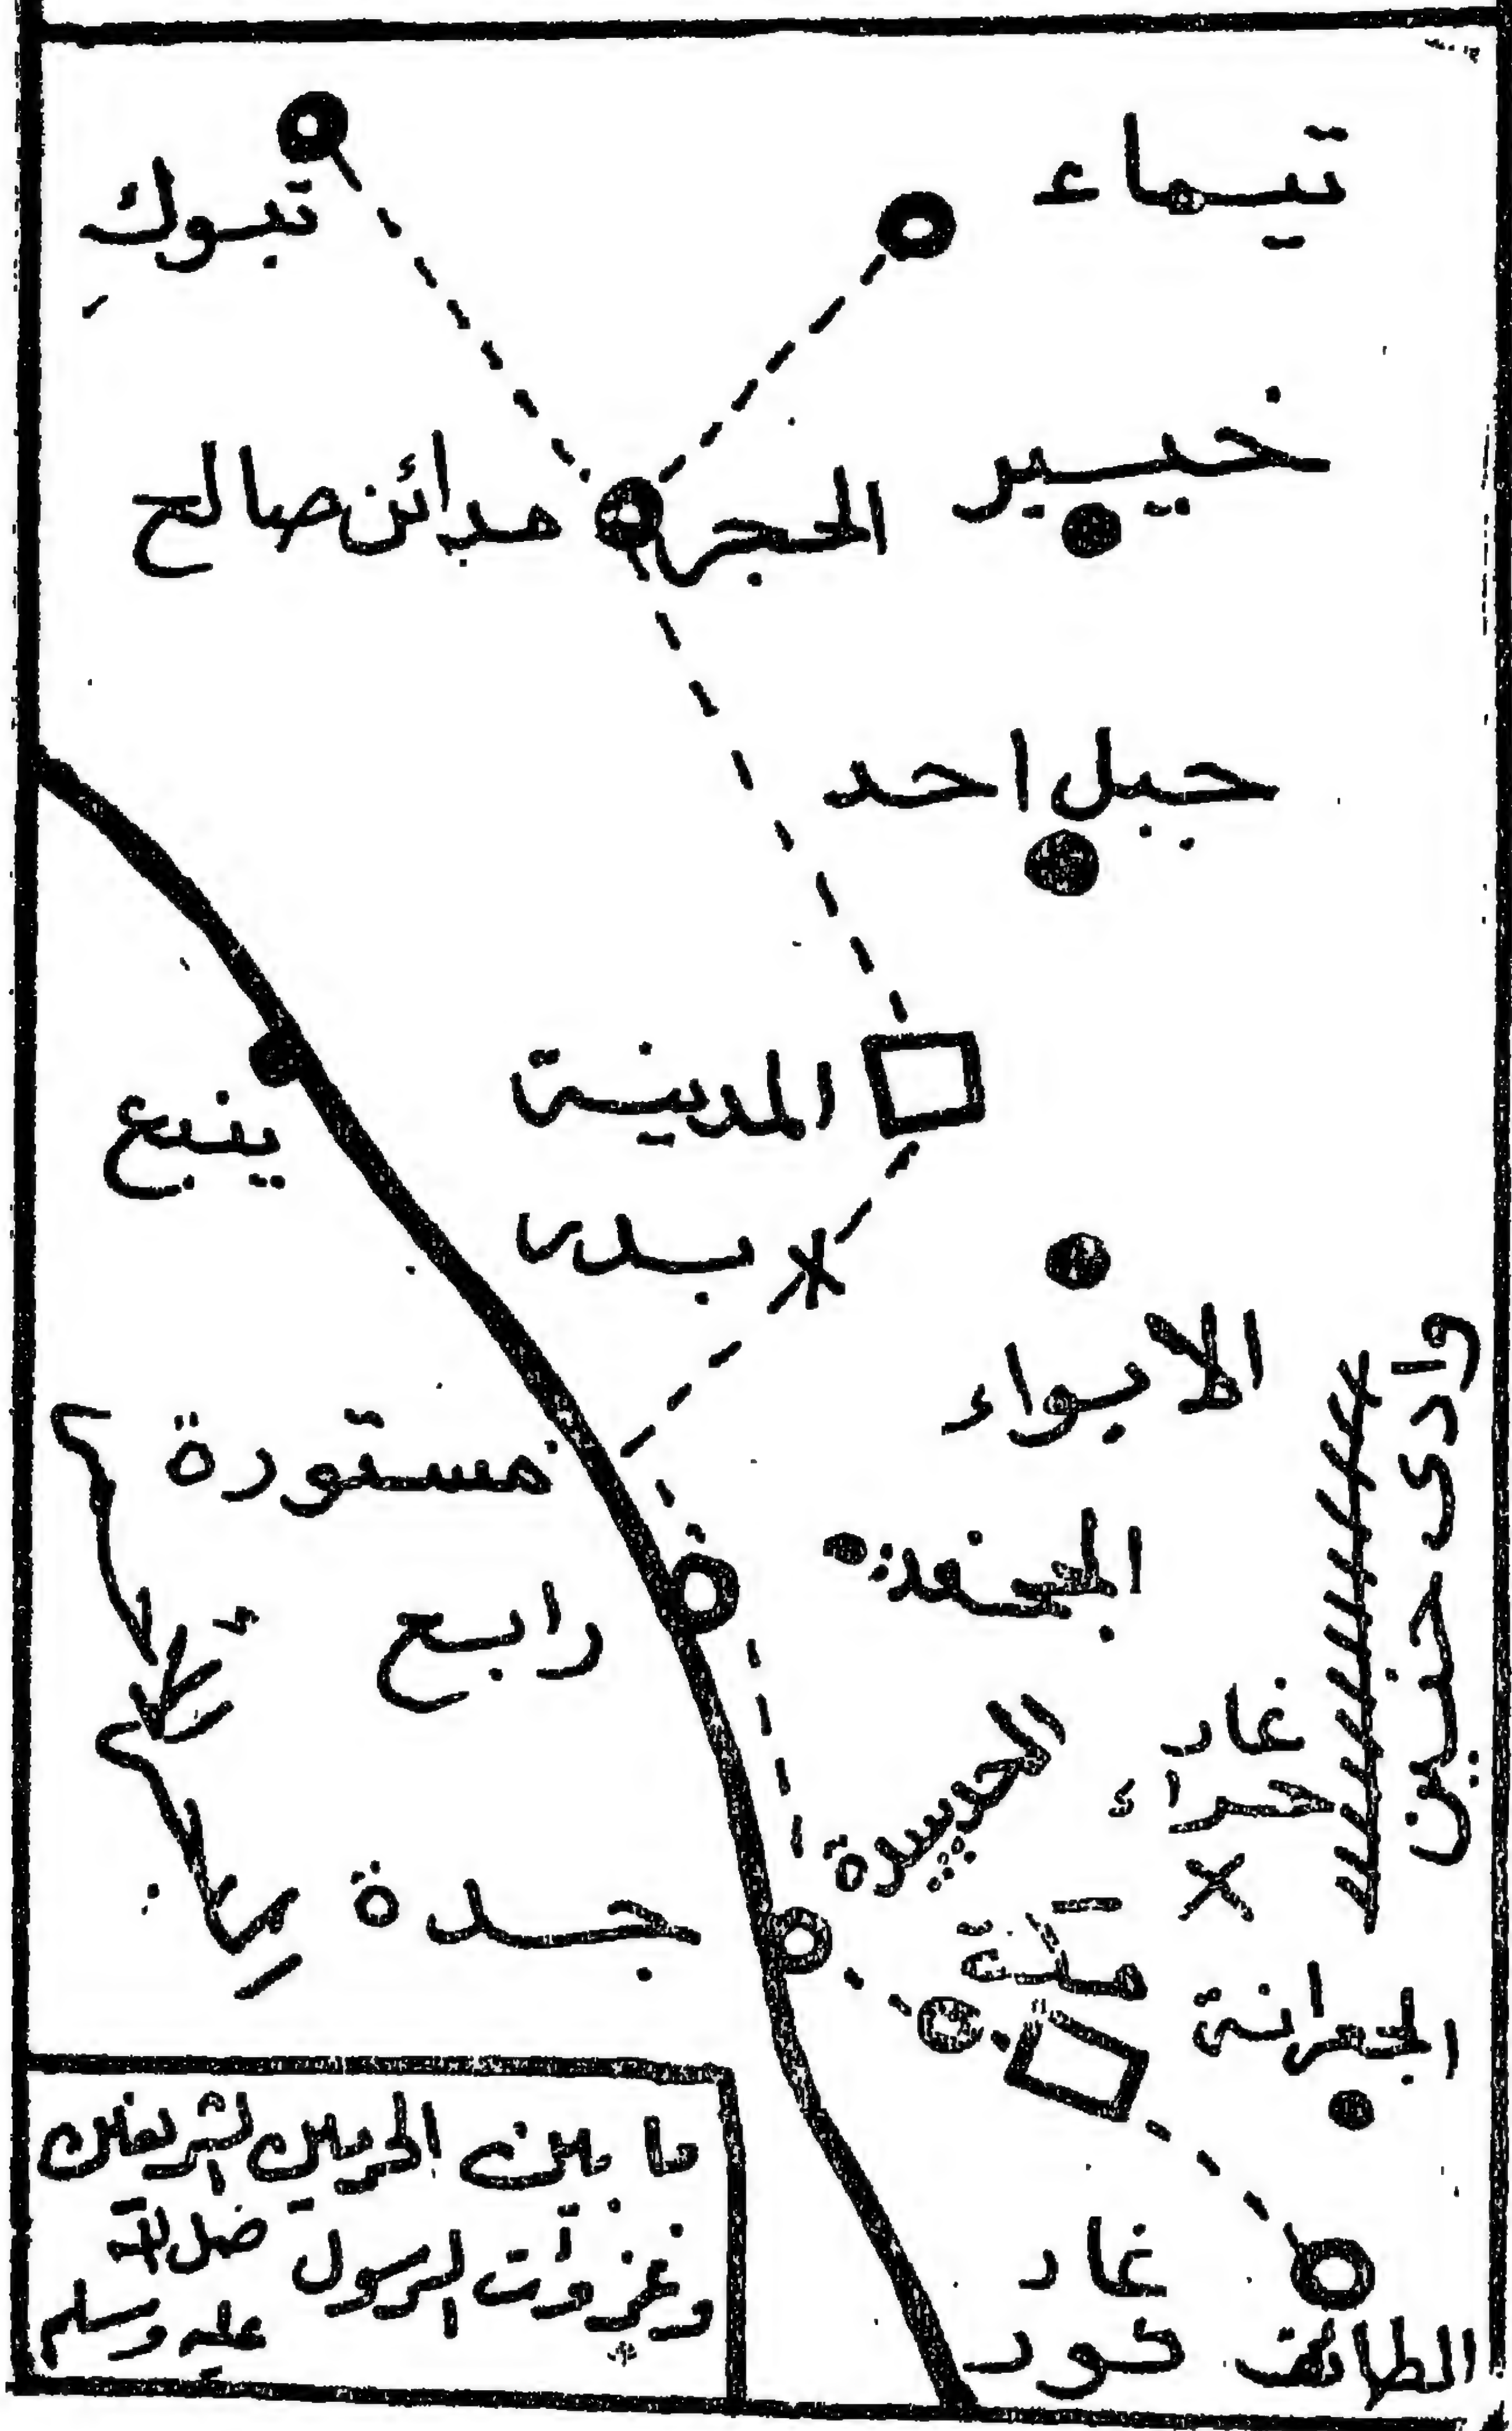 تيماء
تبوك
خيبر
الحجر
مدائن صالح
جبل احد
المدينة
ينبع
بدر
الابواء
وادى حنين
مستورة
الجحفة
رابع
غار
حراء
جدة
مكة
الجعرانة
غار
ثور
الطائف
ما بين الحرمين الشريفين
وغزوات الرسول صلى الله
عليه وسلم